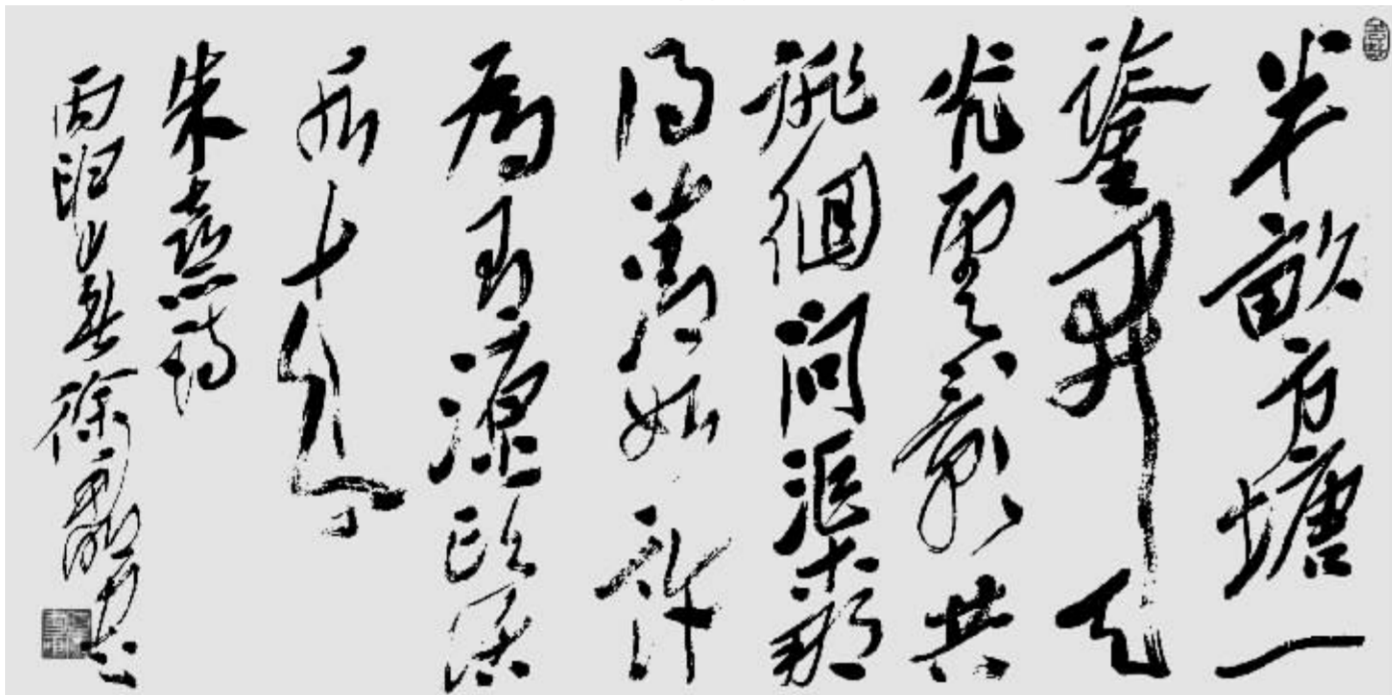 半畝方塘一
鑒開天
光雲影共
徘徊問渠那
得清如許
為有源頭活
水來
朱熹詩
丙春徐書